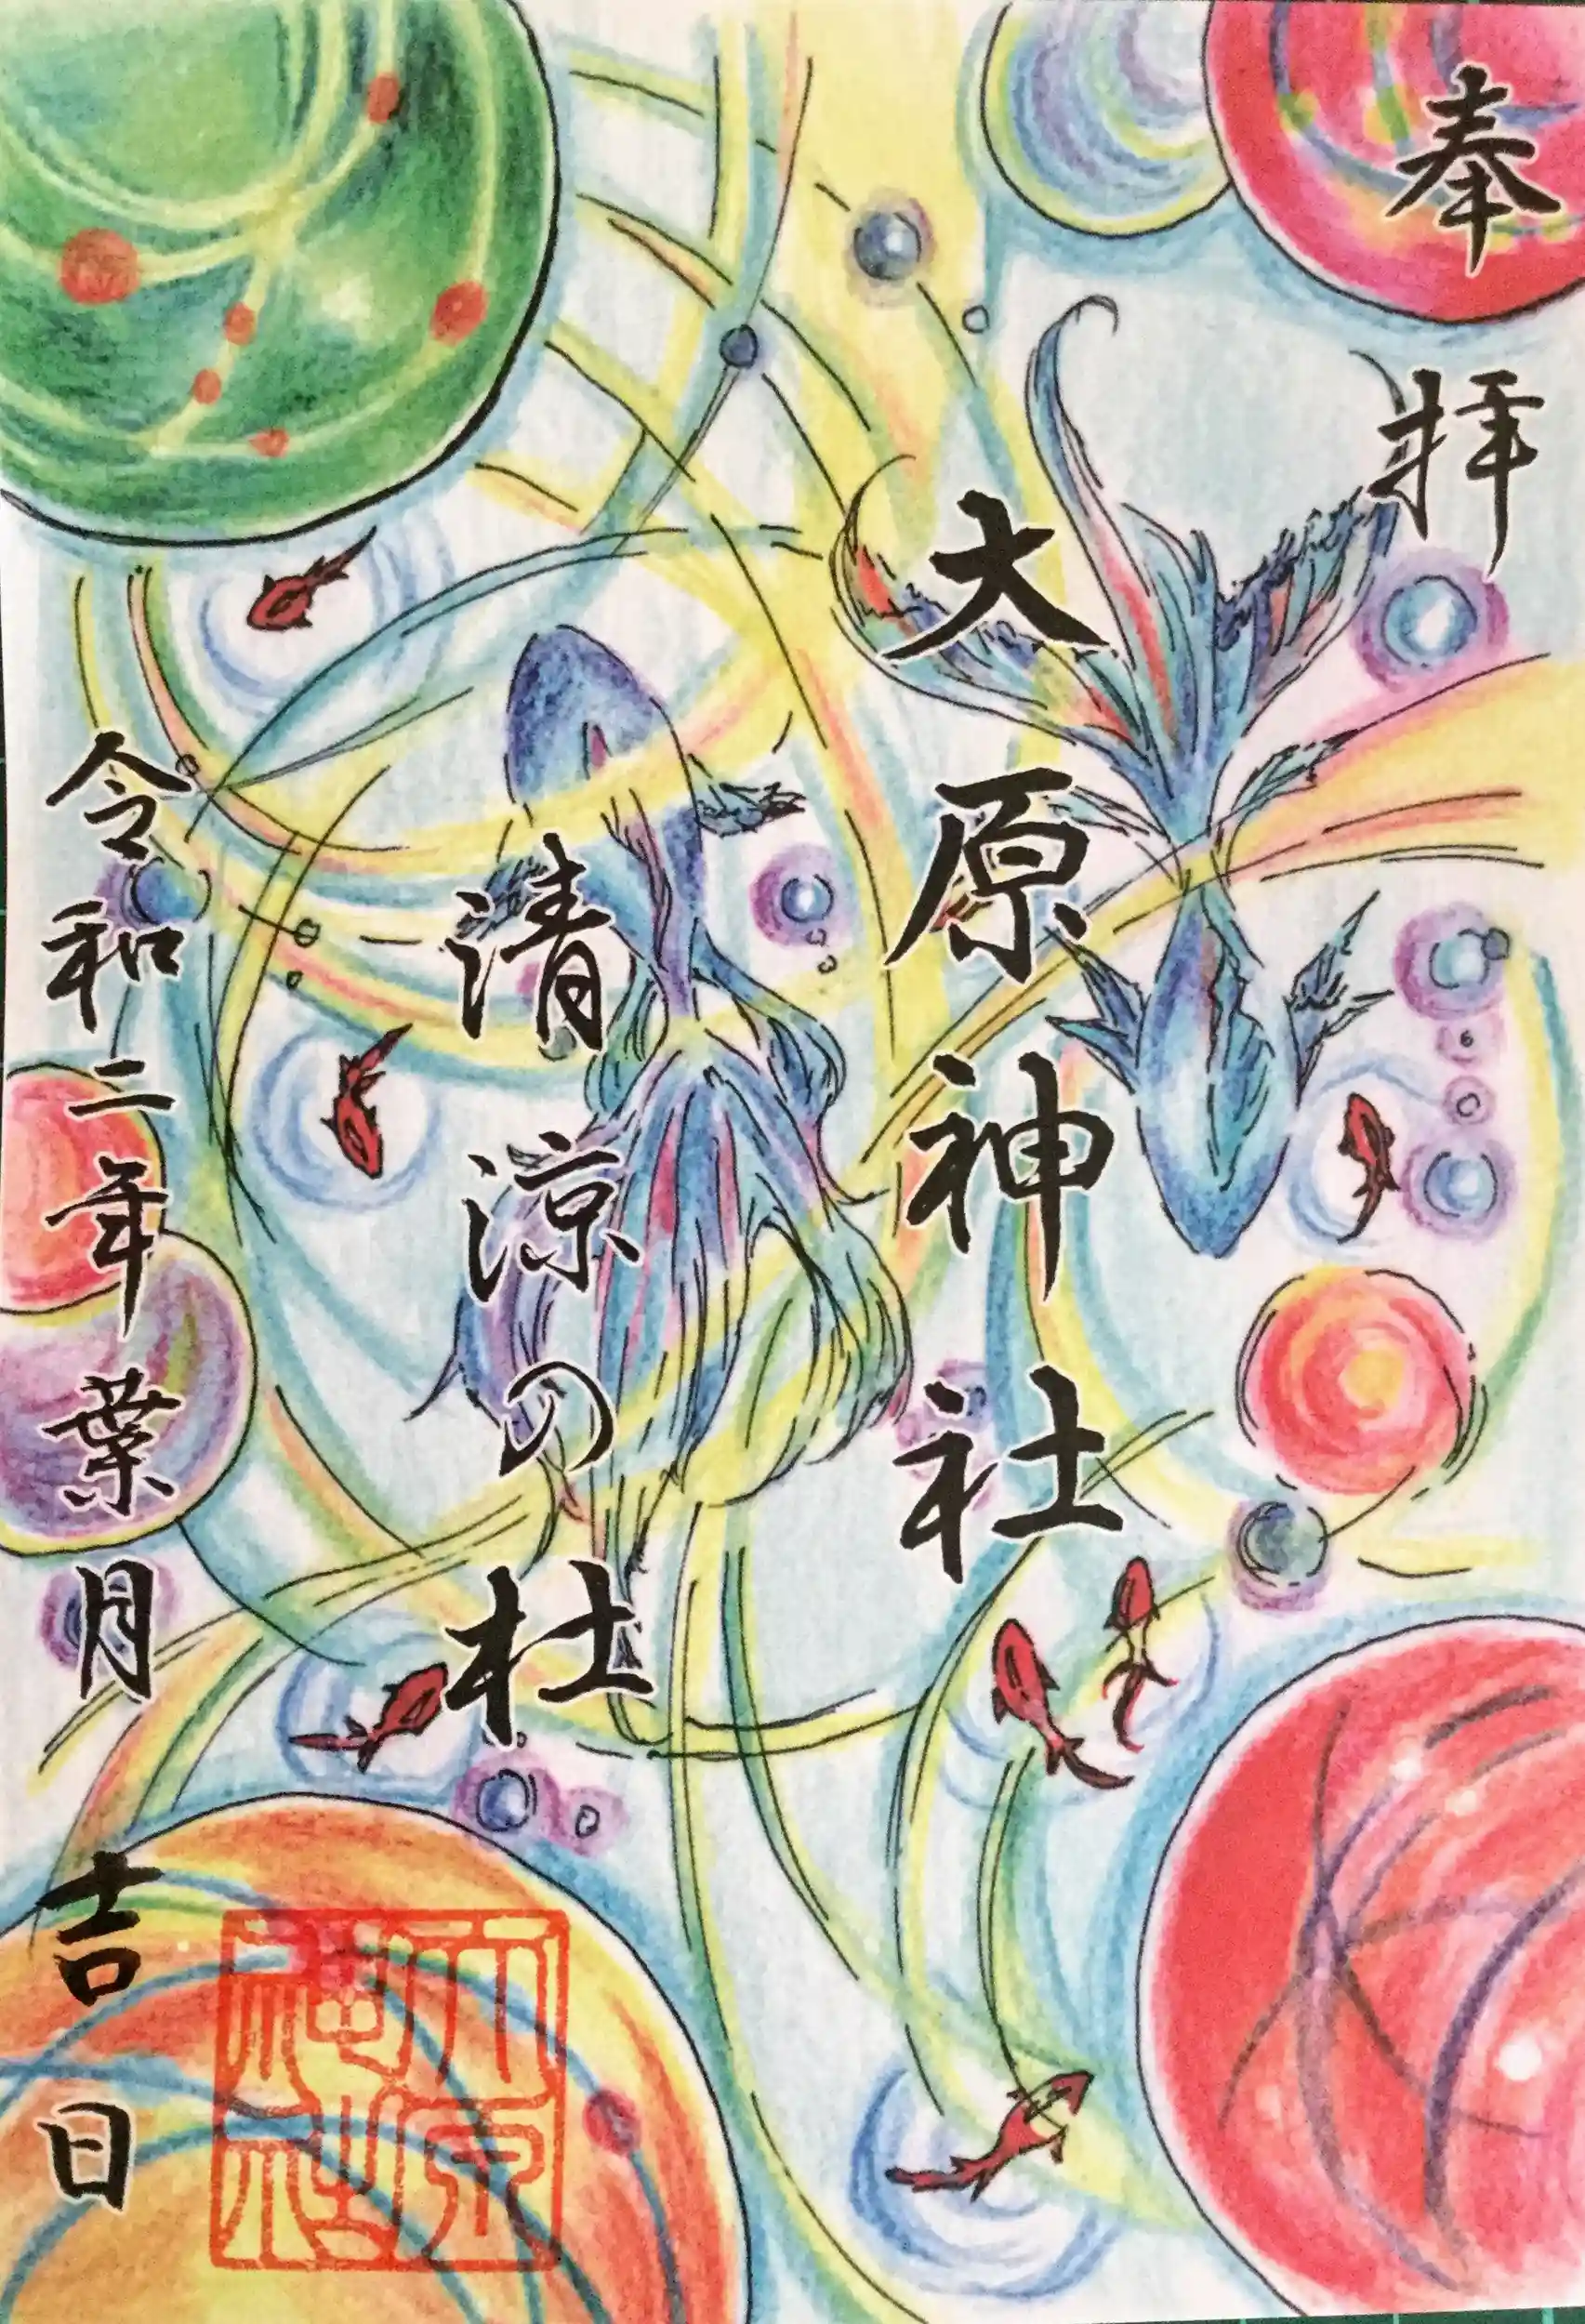 奉拝
大原神社
清涼の杜
令和二年葉月吉日
大原神社